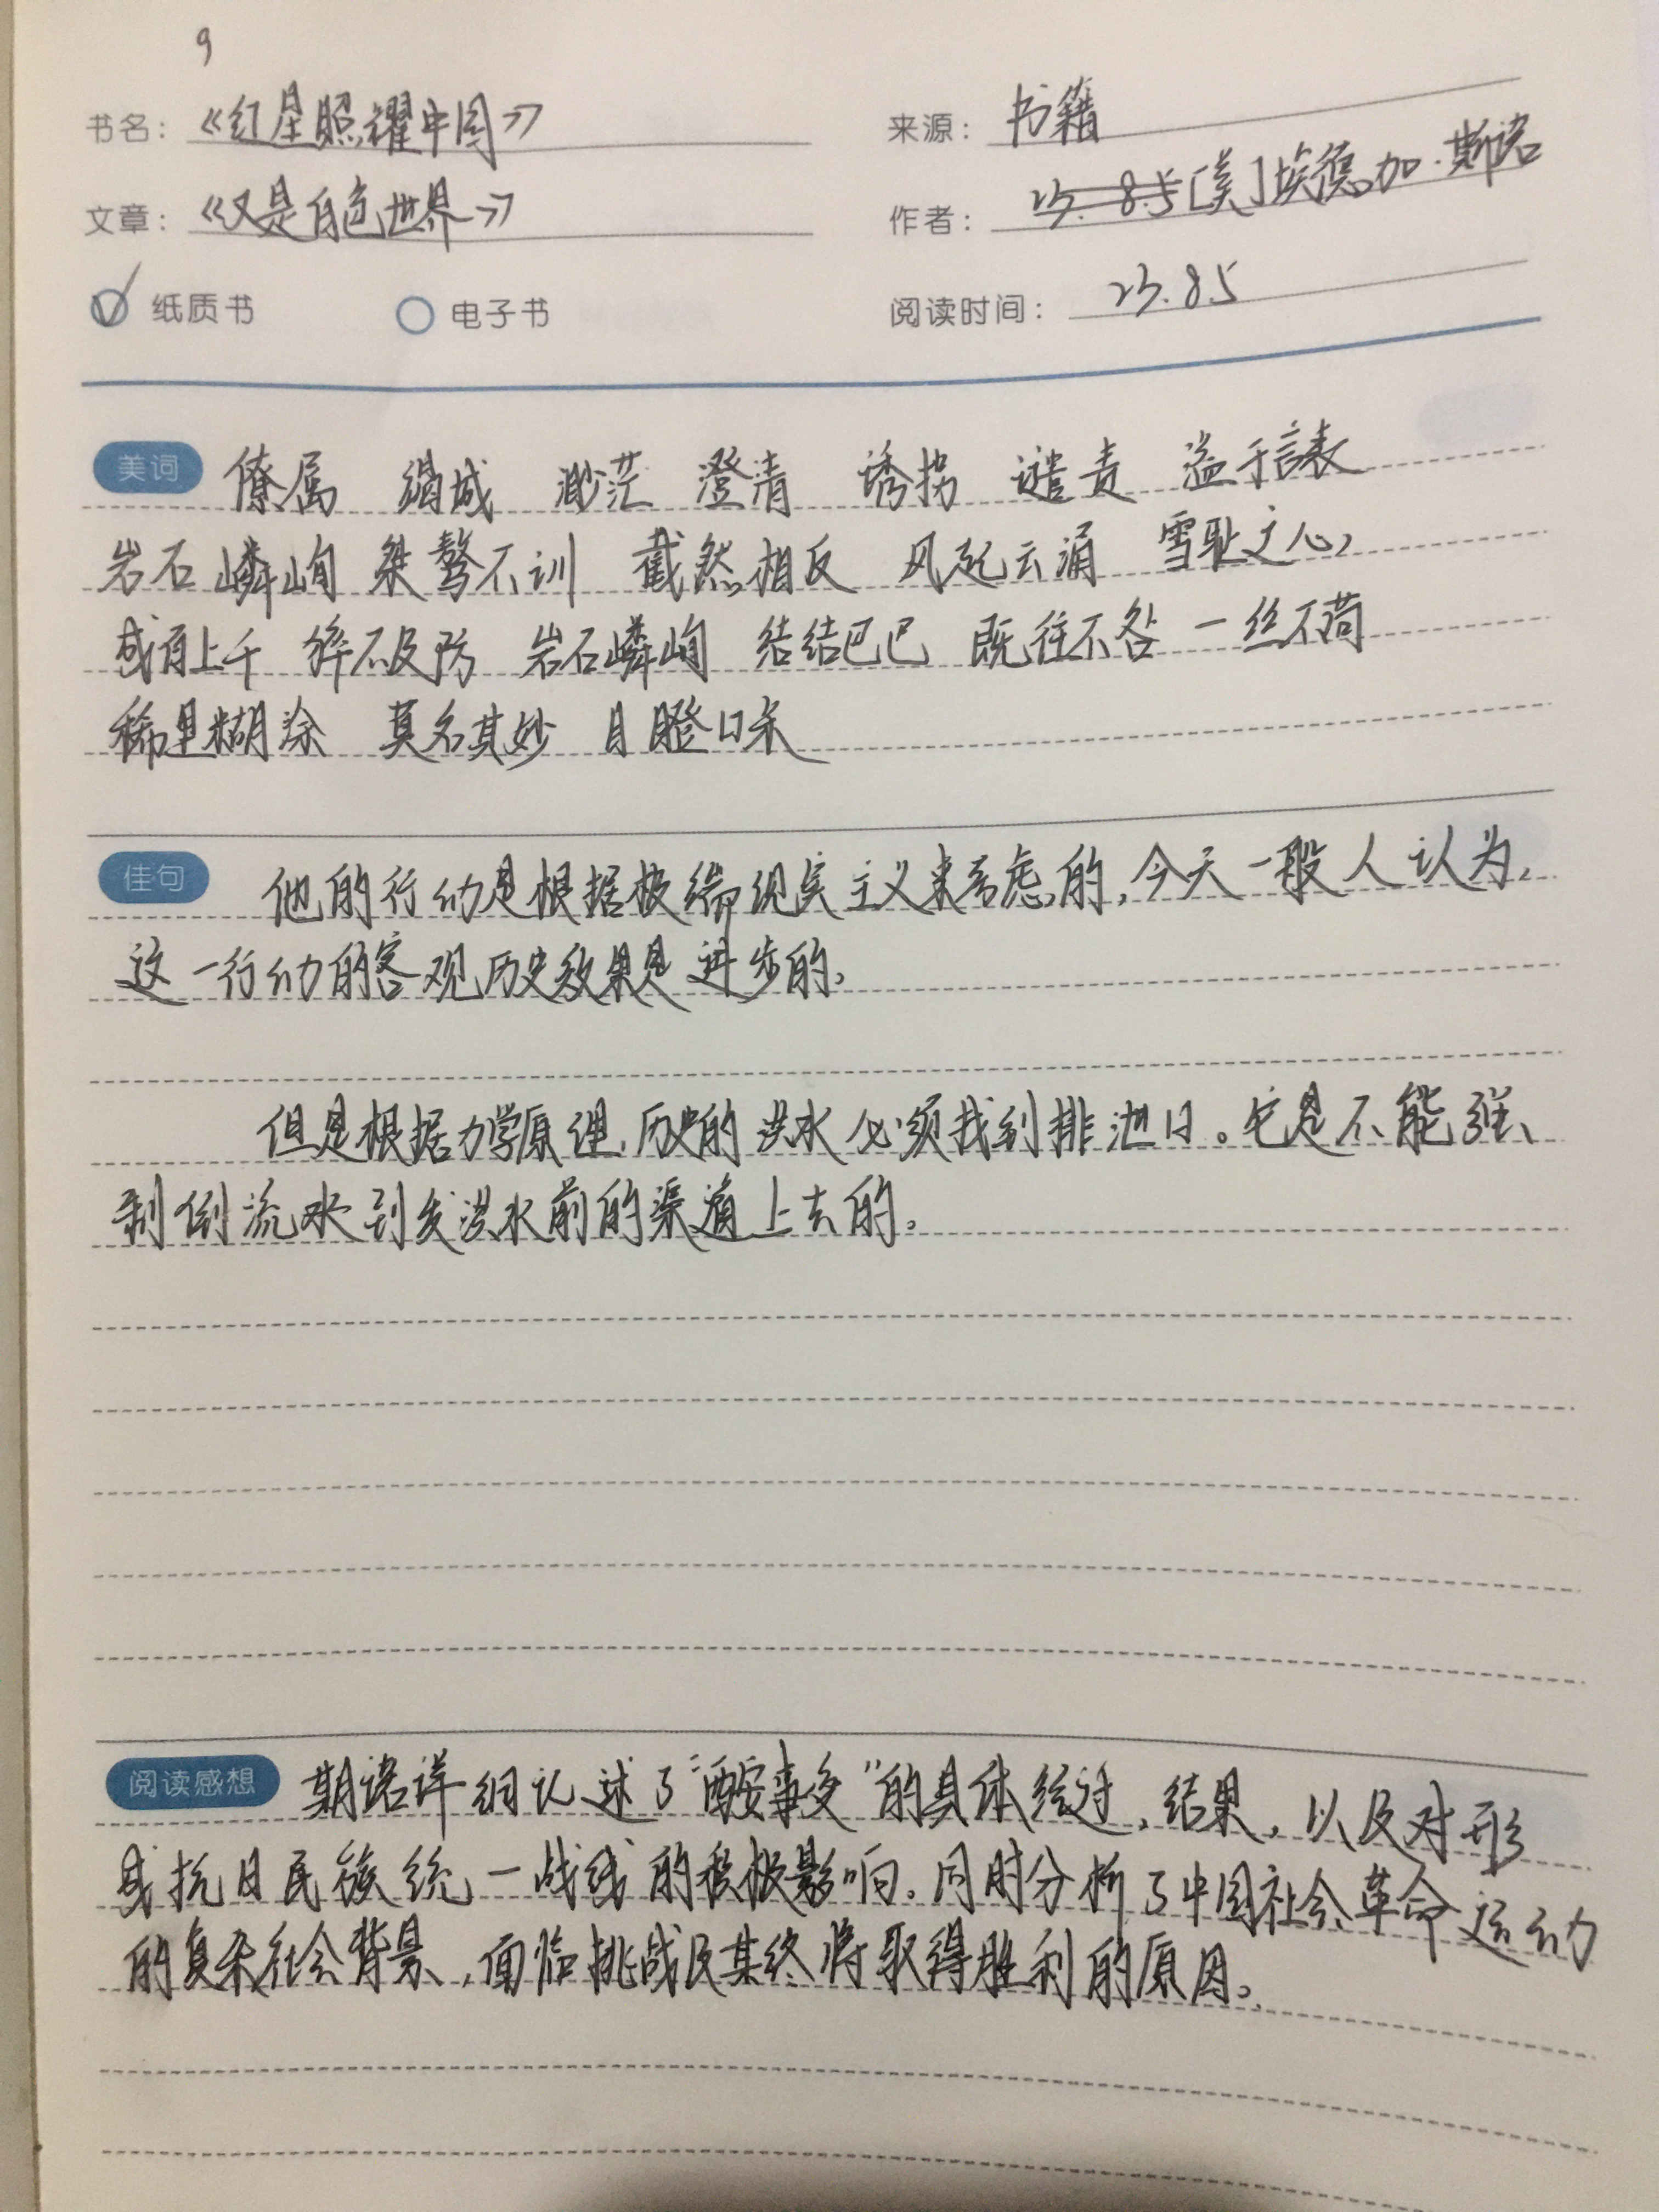 9
书名：《红星照耀中国》 来源：书籍
文章：《又是白色世界》 作者：23.8.5[美]埃德加·斯诺
纸质书 电子书 阅读时间：23.8.5
美词 僚属 缩城 渺茫 澄清 诱拐 谴责 溢于言表
岩石嶙峋 桀骜不训 截然相反 风起云涌 雪耻之心
成百上千 猝不及防 岩石嶙峋 结结巴巴 既往不咎 一丝不苟
稀里糊涂 莫名其妙 目瞪口呆
佳句 他的行动是根据极端现实主义来考虑的，今天一般人认为，
这一行动的客观历史效果是进步的，
但是根据力学原理，历史的洪水必须找到排泄口。它是不能强、
制倒流水到发洪水前的渠道上去的。
阅读感想 斯诺详细记述了“西安事变”的具体经过，结果，以及对形
成抗日民族统一战线的积极影响。同时分析了中国社会革命运动
的复杂社会背景，面临挑战及其终将取得胜利的原因。